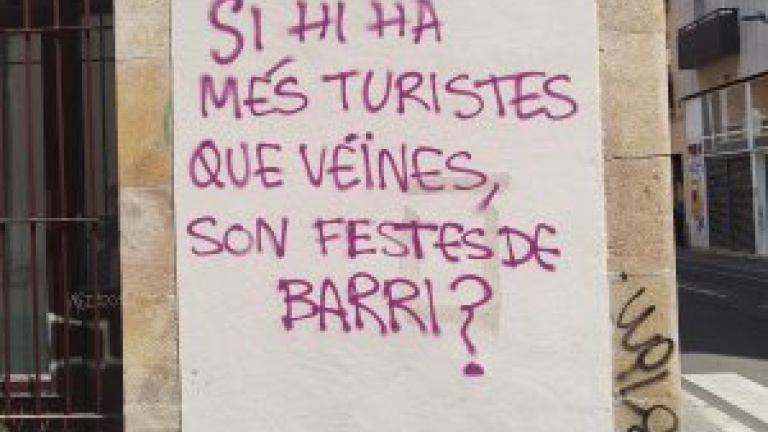 SI HI HA
MÉS TURISTES
QUE VÉÏNES,
SON FESTES DE
BARRI?